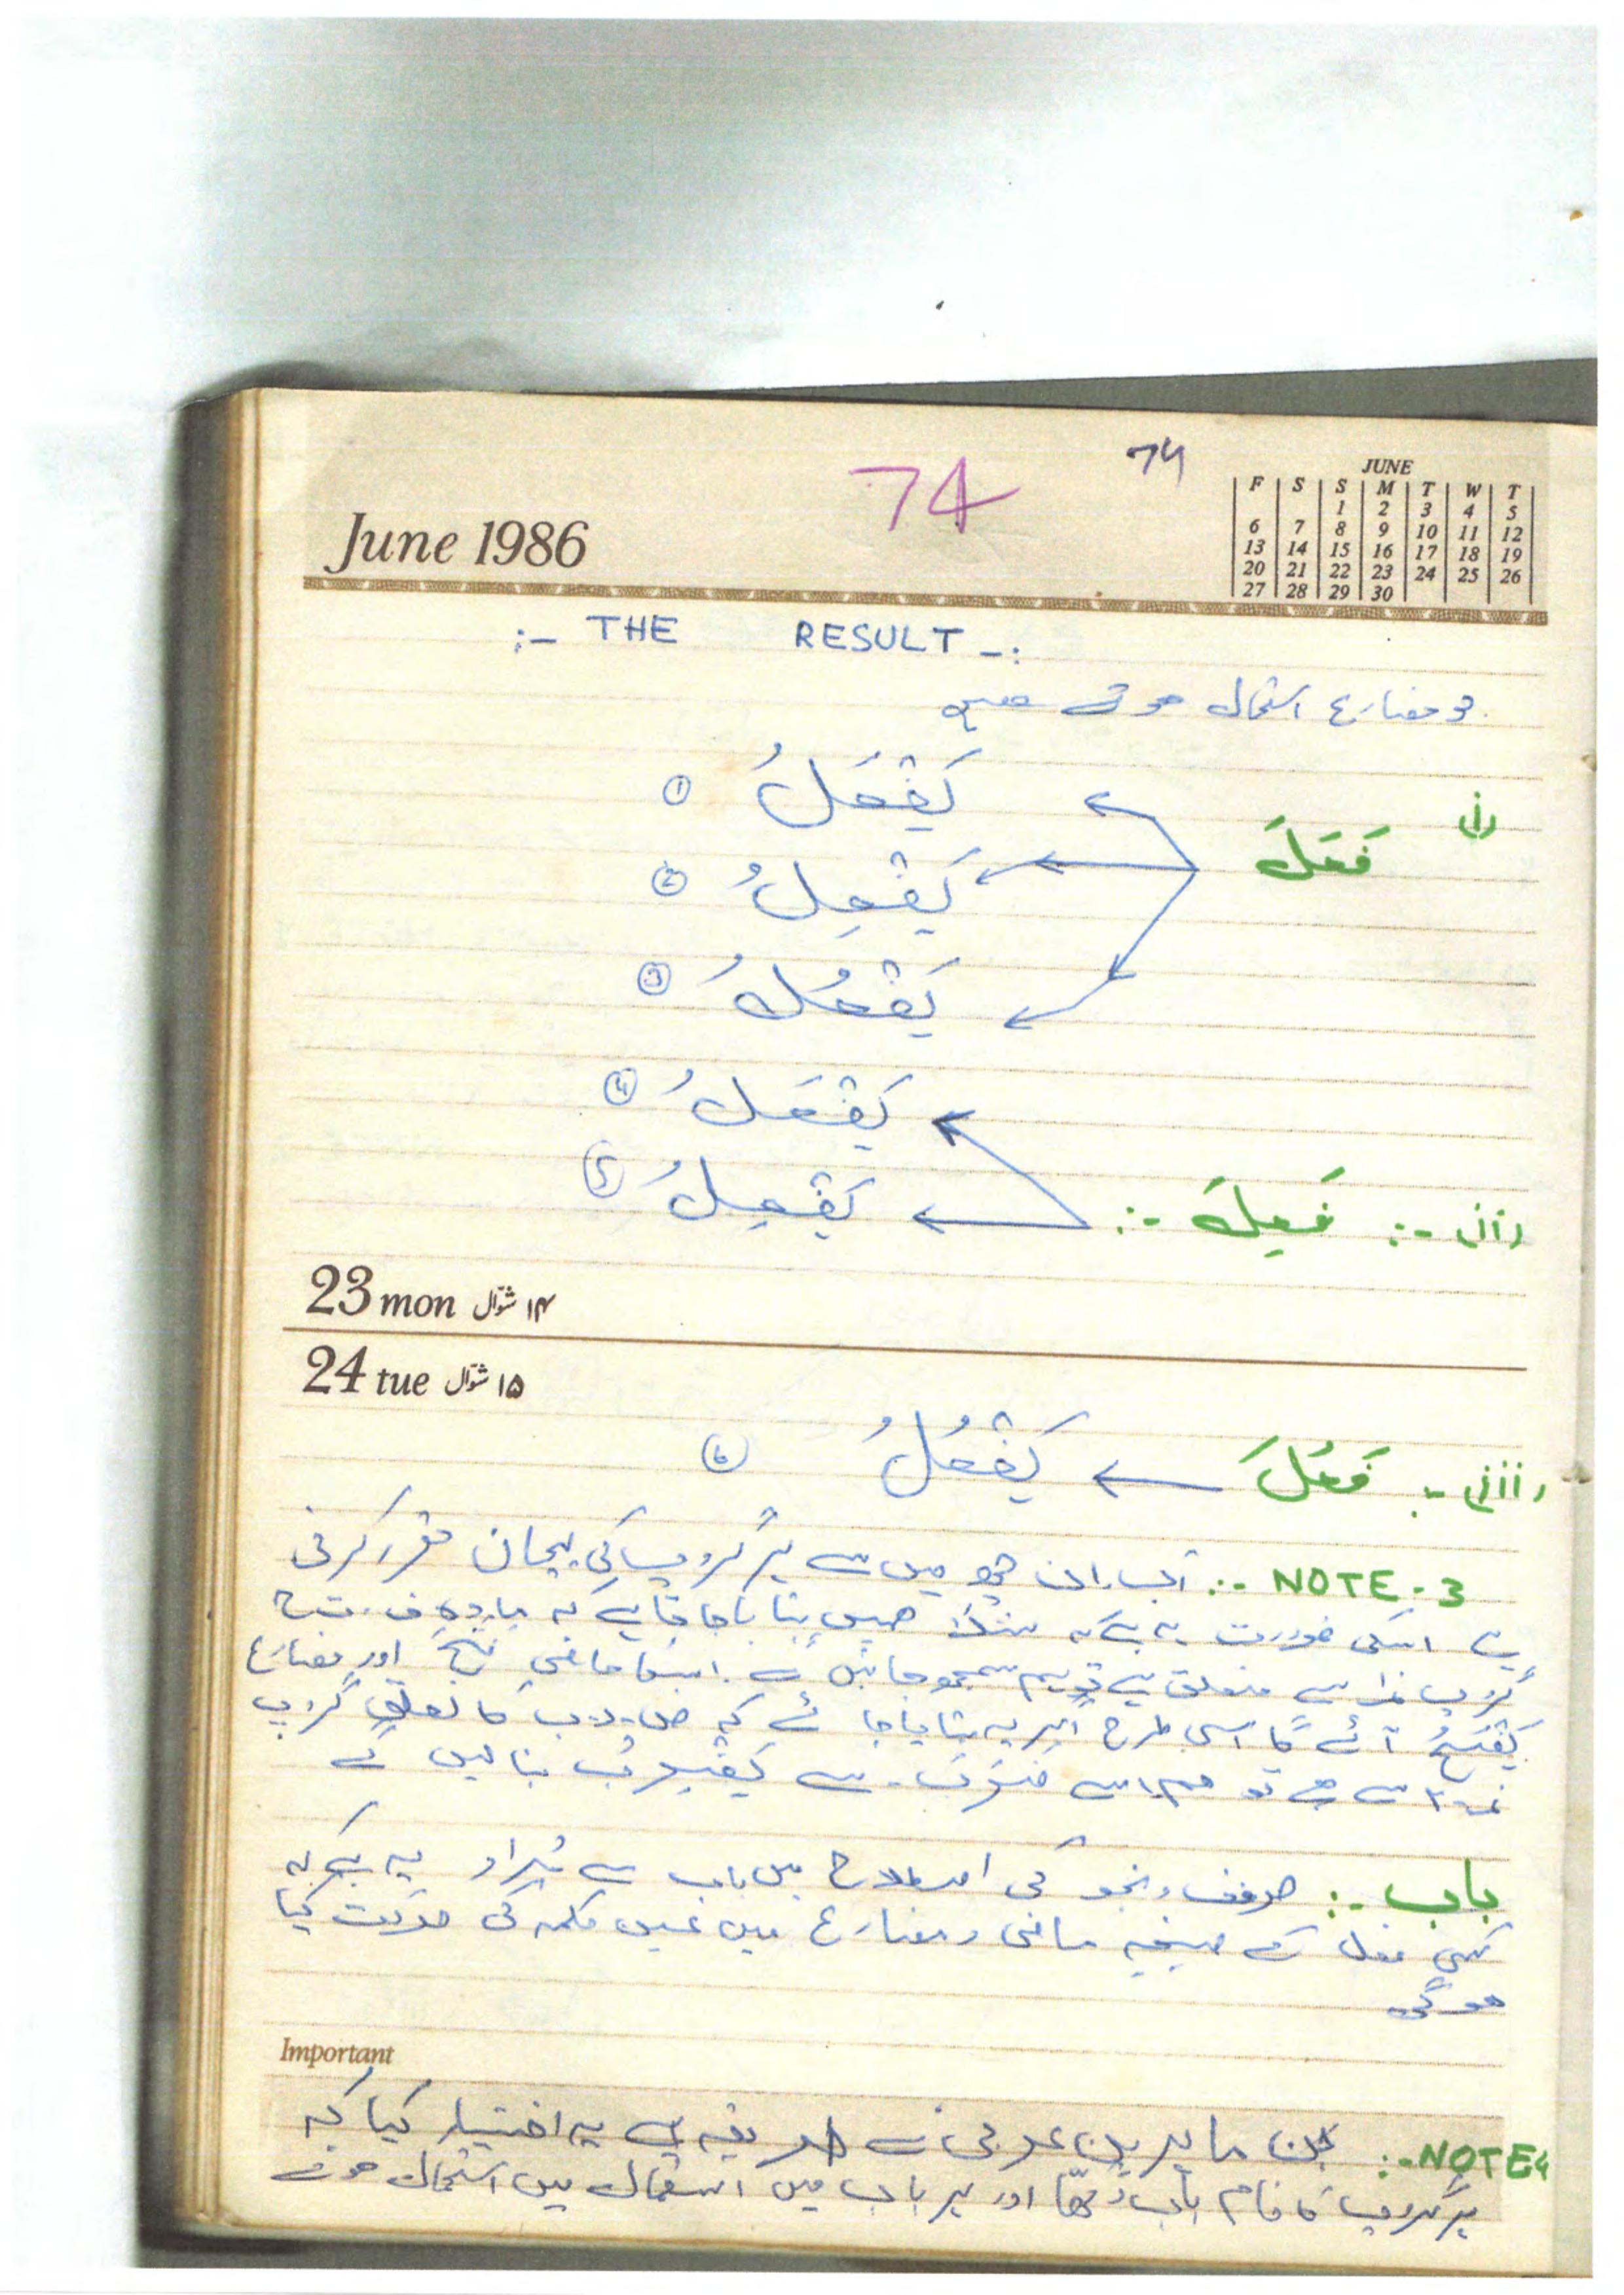 74
74
June 1986
JUNE
F S S M T W T
1 2 3 4 5
6 7 8 9 10 11 12
13 14 15 16 17 18 19
20 21 22 23 24 25 26
27 28 29 30
:- THE RESULT -:
جو مضارع استعمال ہوتے ہیں
(i) فَعَلَ
يَفْعَلُ ①
يَفْعِلُ ②
يَفْعُلُ ③
(ii) :- فَعِلَ :-
يَفْعَلُ ④
يَفْعِلُ ⑤
23 mon ۱۴ شوّال
24 tue ۱۵ شوّال
(iii) :- فَعُلَ ← يَفْعُلُ ⑥
NOTE-3 :- اب ان چھ میں سے ہر گروپ کی پہچان مقرر کرنی
ہے اسکی ضرورت یہ ہے کہ مثلاً ہمیں بتایا جاتا ہے کہ مادہ ف ت ح
گروپ نمبرا سے متعلق ہے تو ہم سمجھ جائیں گے اسکا ماضی فَتَحَ اور مضارع
يَفْتَحُ آئے گا اسی طرح اگر یہ بتایا جائے کہ ض ر ب کا تعلق گروپ
نمبر ۲ سے ہے تو ہم اسے ضَرَبَ سے يَضْرِبُ بنا لیں گے
باب :- صرف و نحو کی اصطلاح میں باب سے مُراد یہ ہے کہ
کسی فعل کے صیغہ ماضی و مضارع میں عین کلمہ کی حرکت کیا
ہو گی
Important
NOTE4 :- ماہرین عربی نے طریقہ یہ اختیار کیا کہ
ہر گروپ کا نام باب رکھا اور ہر باب میں استعمال ہونے